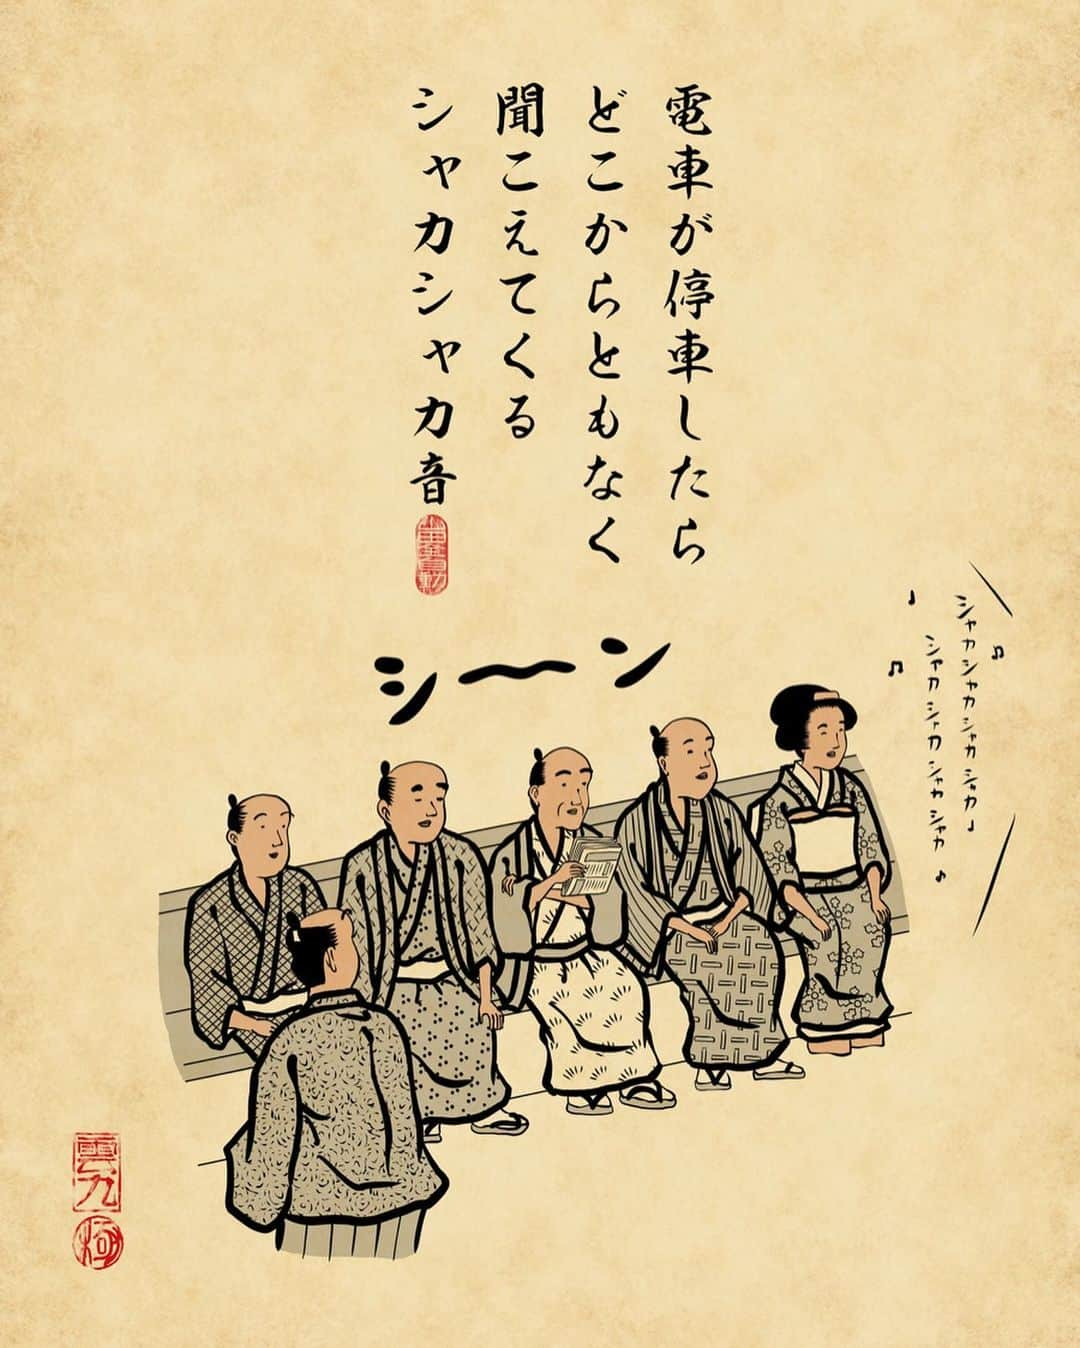 電車が停車したら
どこからともなく
聞こえてくる
シャカシャカ音
シーン
シャカシャカシャカシャカ
シャカシャカシャカシャカ